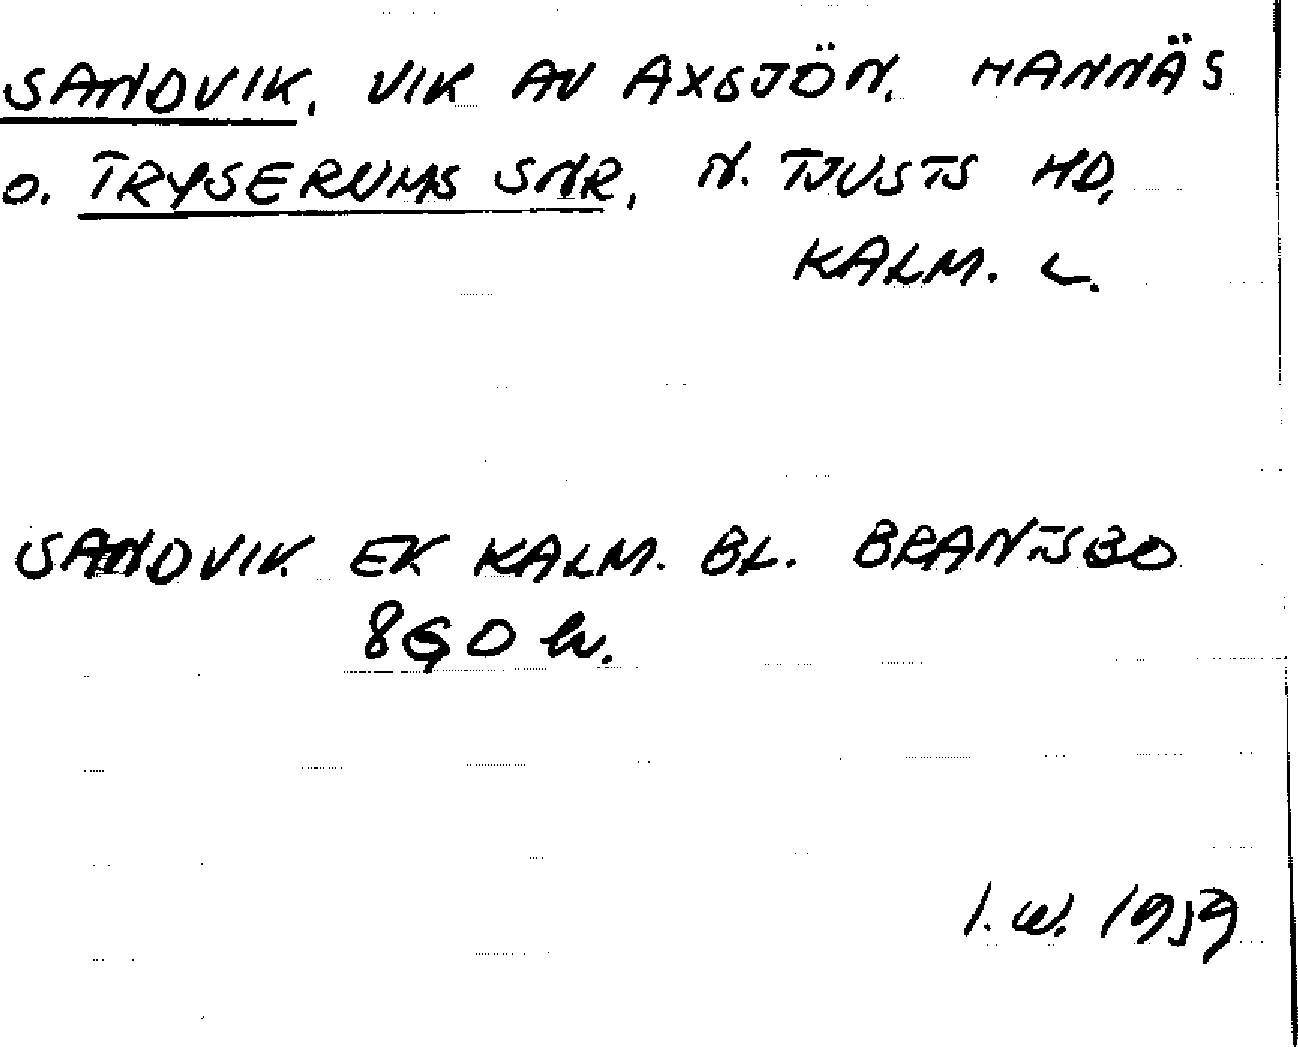 SANDVIK, VIK AV AXSJÖN, HANNÄS
o. TRYSERUMS SNR, N. TJUSTS HD,
KALM. L.
SANDVIK EK KALM. BL. BRANTSBO
ö.
I.W. 1959